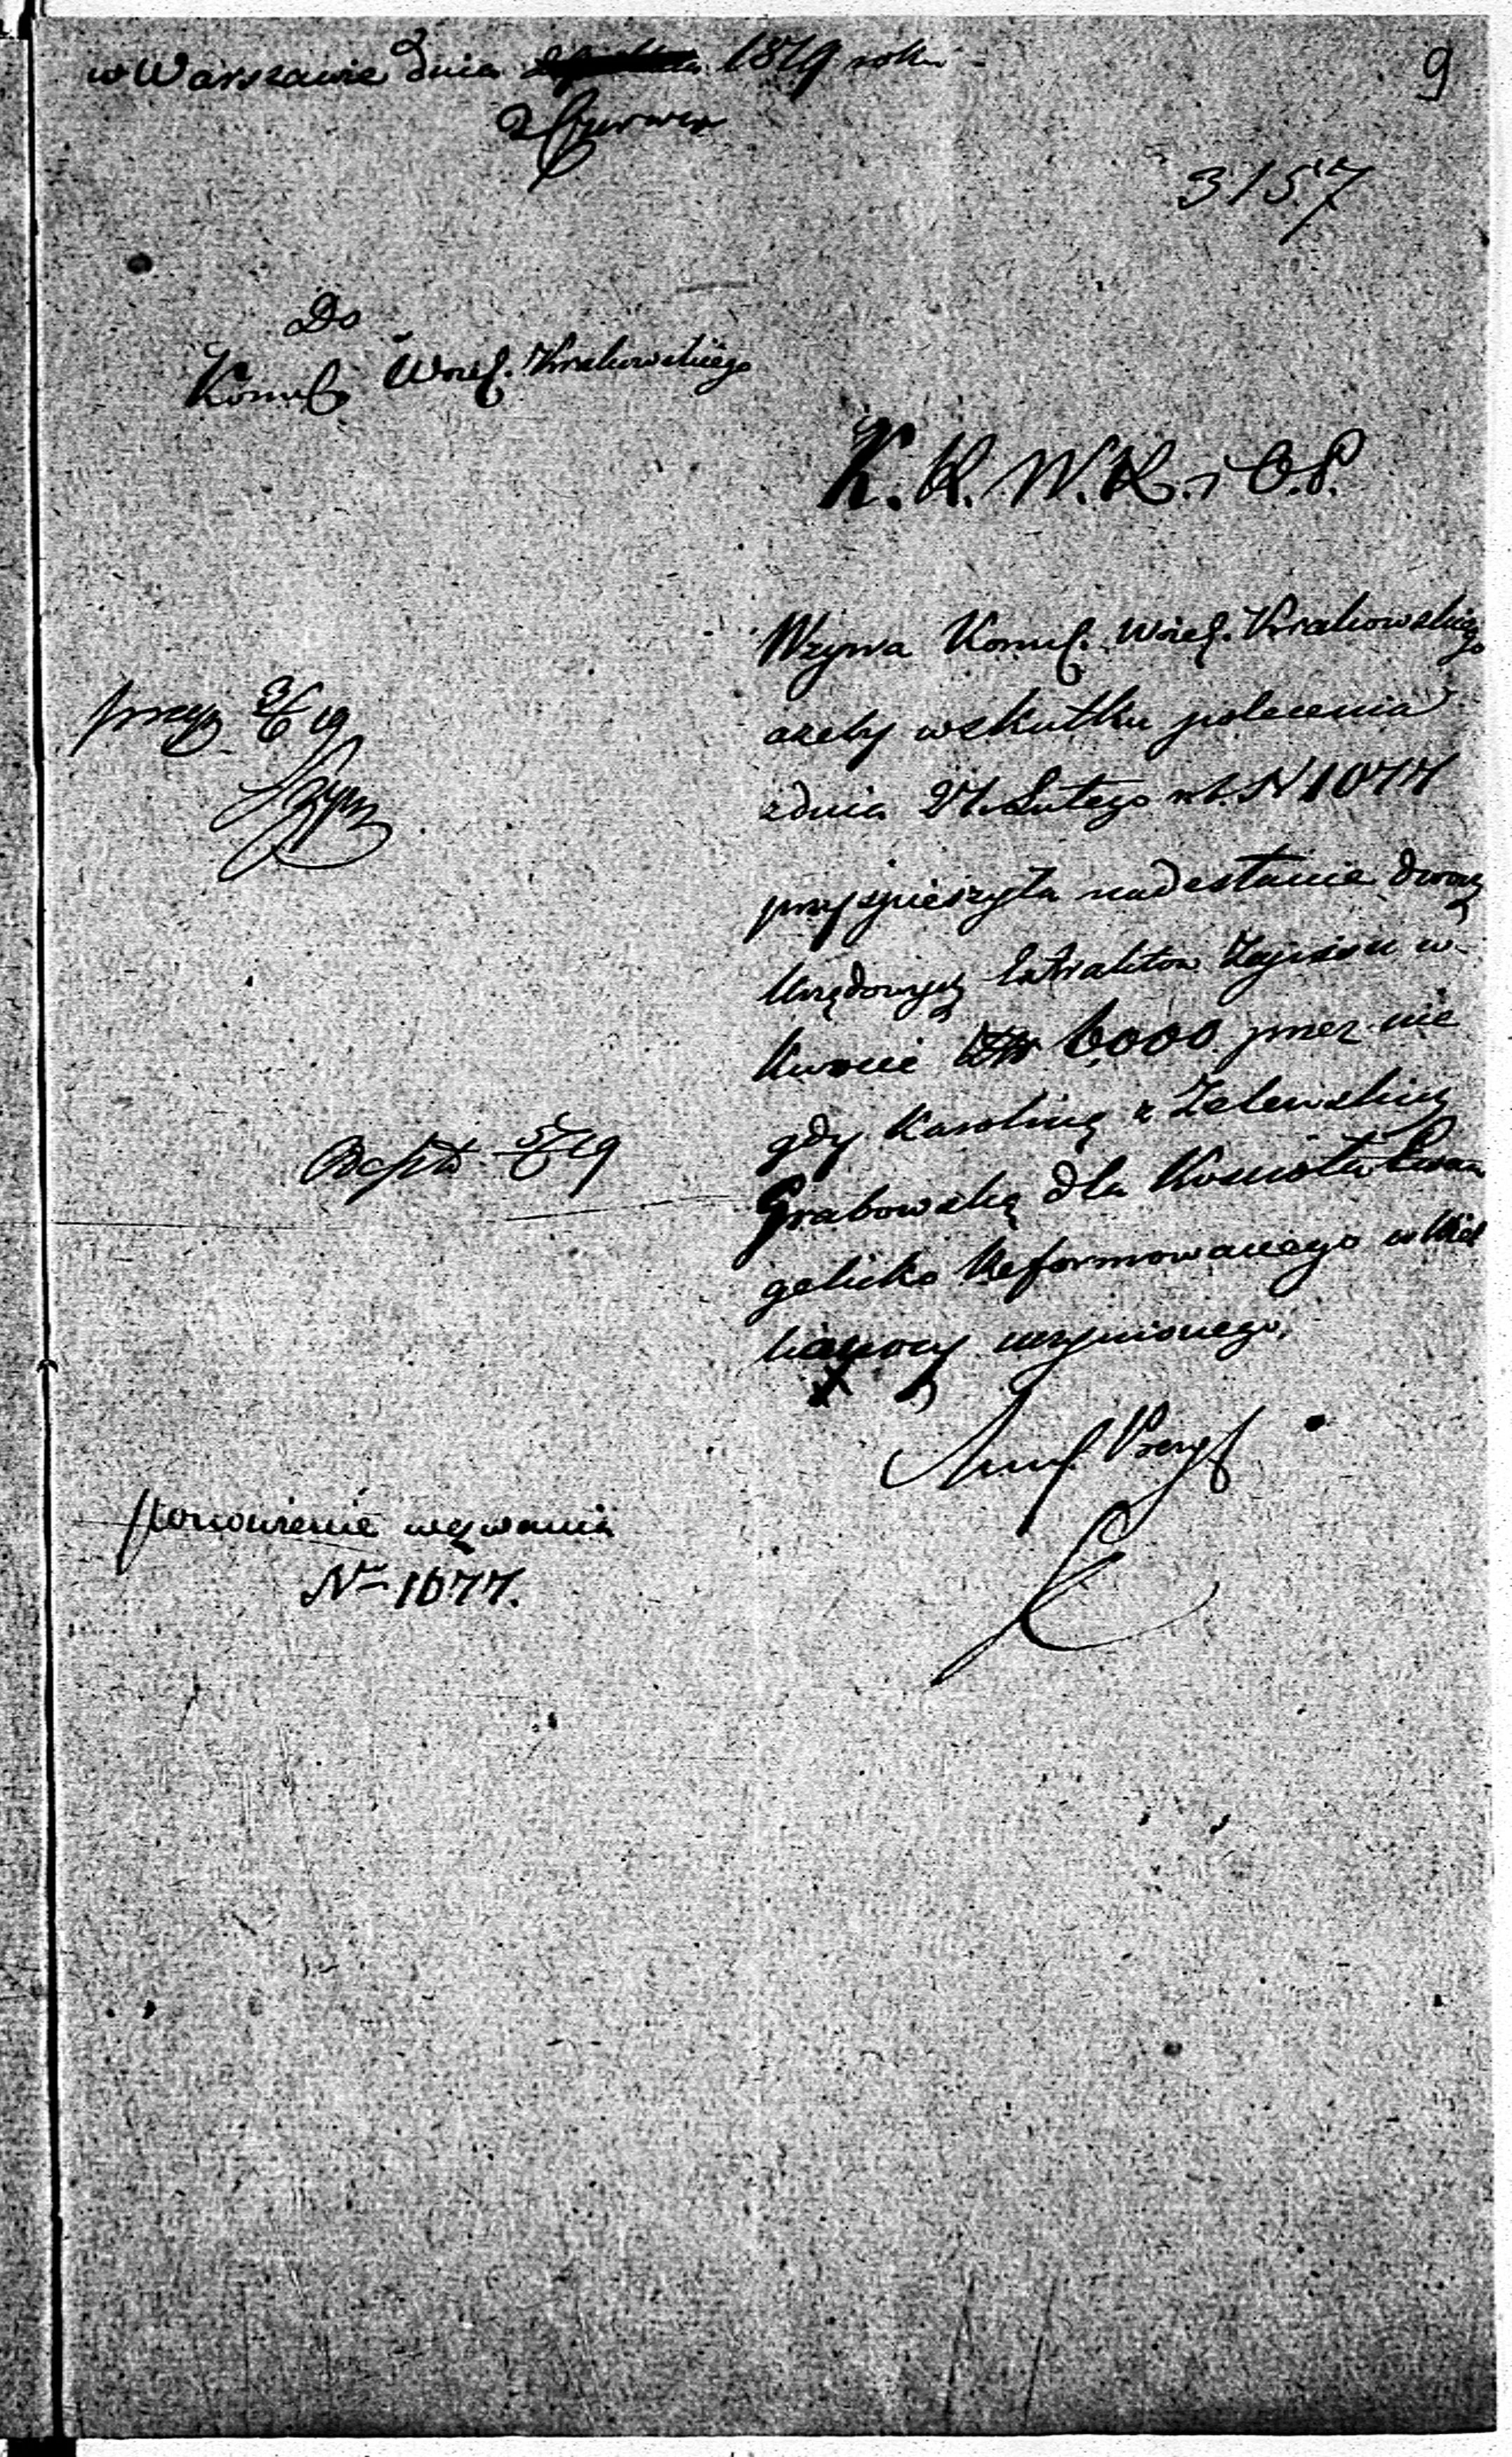 w Warszawie dnia 1819 roku
2 Czerwca
9
3157
Do
Komiſ. Woieſ. Krakowskiego
K. R. W. R. i O. P.
Wzywa Komiſ. Woieſ. Krakowskiego
ażeby wskutku polecenia
z dnia 27. Lutego r. b. N 1077
przyspieszyła nadesłanie dwóch
Urzędowych Extraktow Zapisu w
kwocie 6,000 przez nie
gdy Karolinę z Zelewskich
Grabowską dla Kosciołu Ewan
gelicko Reformowanego w Wiel
kanocy uczynionego.
przyp 3/6 19
Exped 5/6 19
Ponowienie wezwania
Nro 1077.